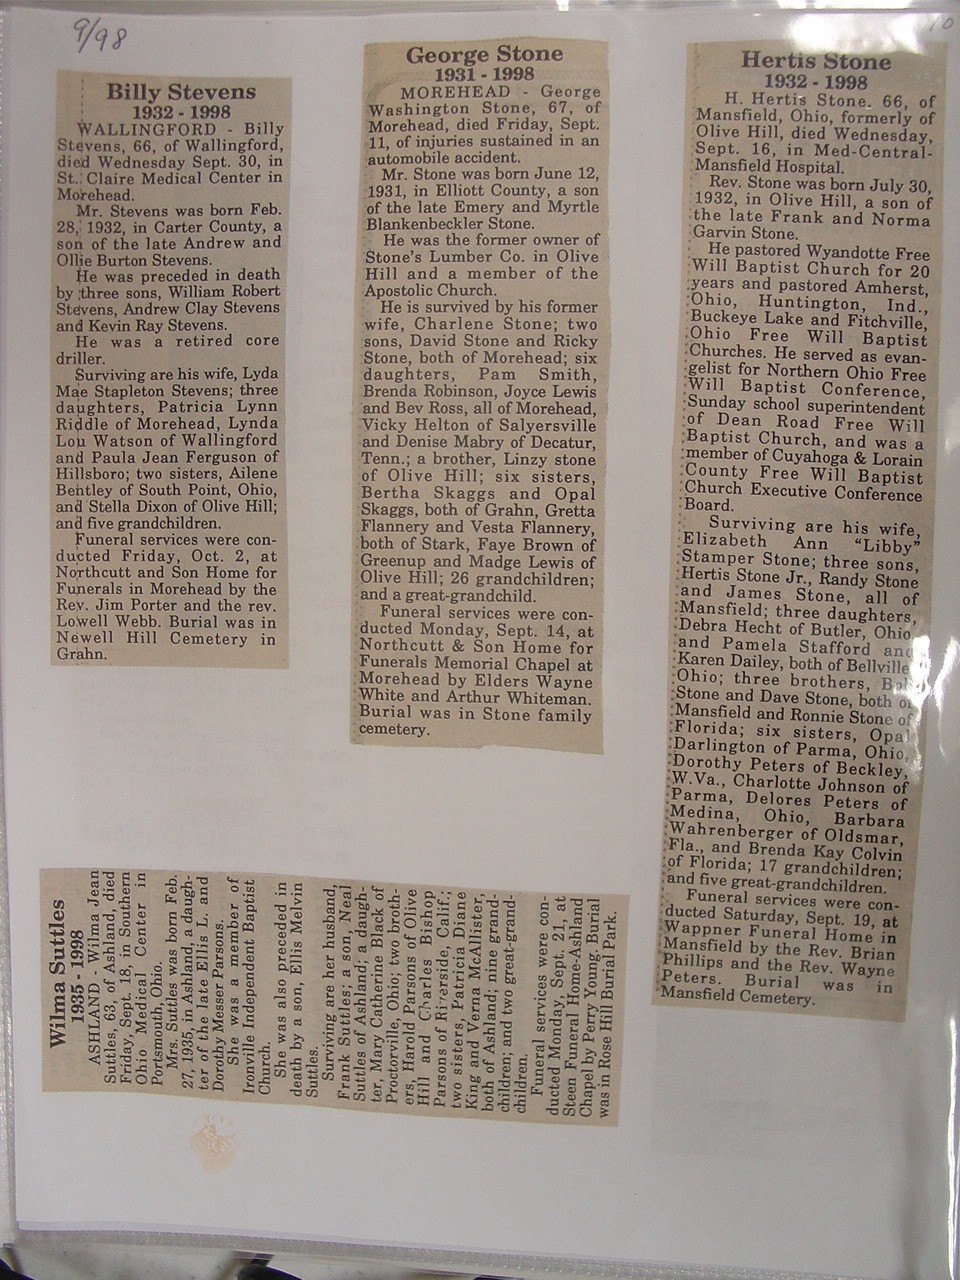 9/98
Billy Stevens
1932 - 1998
WALLINGFORD - Billy
Stevens, 66, of Wallingford,
died Wednesday Sept. 30, in
St. Claire Medical Center in
Morehead.
Mr. Stevens was born Feb.
28, 1932, in Carter County, a
son of the late Andrew and
Ollie Burton Stevens.
He was preceded in death
by three sons, William Robert
Stevens, Andrew Clay Stevens
and Kevin Ray Stevens.
He was a retired core
driller.
Surviving are his wife, Lyda
Mae Stapleton Stevens; three
daughters, Patricia Lynn
Riddle of Morehead, Lynda
Lou Watson of Wallingford
and Paula Jean Ferguson of
Hillsboro; two sisters, Ailene
Bentley of South Point, Ohio,
and Stella Dixon of Olive Hill;
and five grandchildren.
Funeral services were con-
ducted Friday, Oct. 2, at
Northcutt and Son Home for
Funerals in Morehead by the
Rev. Jim Porter and the rev.
Lowell Webb. Burial was in
Newell Hill Cemetery in
Grahn.
George Stone
1931 - 1998
MOREHEAD - George
Washington Stone, 67, of
Morehead, died Friday, Sept.
11, of injuries sustained in an
automobile accident.
Mr. Stone was born June 12,
1931, in Elliott County, a son
of the late Emery and Myrtle
Blankenbeckler Stone.
He was the former owner of
Stone's Lumber Co. in Olive
Hill and a member of the
Apostolic Church.
He is survived by his former
wife, Charlene Stone; two
sons, David Stone and Ricky
Stone, both of Morehead; six
daughters, Pam Smith,
Brenda Robinson, Joyce Lewis
and Bev Ross, all of Morehead,
Vicky Helton of Salyersville
and Denise Mabry of Decatur,
Tenn.; a brother, Linzy stone
of Olive Hill; six sisters,
Bertha Skaggs and Opal
Skaggs, both of Grahn, Gretta
Flannery and Vesta Flannery,
both of Stark, Faye Brown of
Greenup and Madge Lewis of
Olive Hill; 26 grandchildren;
and a great-grandchild.
Funeral services were con-
ducted Monday, Sept. 14, at
Northcutt & Son Home for
Funerals Memorial Chapel at
Morehead by Elders Wayne
White and Arthur Whiteman.
Burial was in Stone family
cemetery.
Hertis Stone
1932 - 1998
H. Hertis Stone. 66, of
Mansfield, Ohio, formerly of
Olive Hill, died Wednesday,
Sept. 16, in Med-Central-
Mansfield Hospital.
Rev. Stone was born July 30,
1932, in Olive Hill, a son of
the late Frank and Norma
Garvin Stone.
He pastored Wyandotte Free
Will Baptist Church for 20
years and pastored Amherst,
Ohio, Huntington, Ind.,
Buckeye Lake and Fitchville,
Ohio Free Will Baptist
Churches. He served as evan-
gelist for Northern Ohio Free
Will Baptist Conference,
Sunday school superintendent
of Dean Road Free Will
Baptist Church, and was a
member of Cuyahoga & Lorain
County Free Will Baptist
Church Executive Conference
Board.
Surviving are his wife,
Elizabeth Ann “Libby”
Stamper Stone; three sons,
Hertis Stone Jr., Randy Stone
and James Stone, all of
Mansfield; three daughters,
Debra Hecht of Butler, Ohio
and Pamela Stafford and
Karen Dailey, both of Bellville
Ohio; three brothers, Bob
Stone and Dave Stone, both of
Mansfield and Ronnie Stone of
Florida; six sisters, Opal
Darlington of Parma, Ohio,
Dorothy Peters of Beckley,
W.Va., Charlotte Johnson of
Parma, Delores Peters of
Medina, Ohio, Barbara
Wahrenberger of Oldsmar,
Fla., and Brenda Kay Colvin
of Florida; 17 grandchildren;
and five great-grandchildren.
Funeral services were con-
ducted Saturday, Sept. 19, at
Wappner Funeral Home in
Mansfield by the Rev. Brian
Phillips and the Rev. Wayne
Peters. Burial was in
Mansfield Cemetery.
Wilma Suttles
1935 - 1998
ASHLAND - Wilma Jean
Suttles, 63, of Ashland, died
Friday, Sept. 18, in Southern
Ohio Medical Center in
Portsmouth, Ohio.
Mrs. Suttles was born Feb.
27, 1935, in Ashland, a daugh-
ter of the late Ellis L. and
Dorothy Messer Parsons.
She was a member of
Ironville Independent Baptist
Church.
She was also preceded in
death by a son, Ellis Melvin
Suttles.
Surviving are her husband,
Frank Suttles; a son, Neal
Suttles of Ashland; a daugh-
ter, Mary Catherine Black of
Proctorville, Ohio; two broth-
ers, Harold Parsons of Olive
Hill and Charles Bishop
Parsons of Riverside, Calif.;
two sisters, Patricia Diane
King and Verna McAllister,
both of Ashland; nine grand-
children; and two great-grand-
children.
Funeral services were con-
ducted Monday, Sept. 21, at
Steen Funeral Home-Ashland
Chapel by Perry Young. Burial
was in Rose Hill Burial Park.